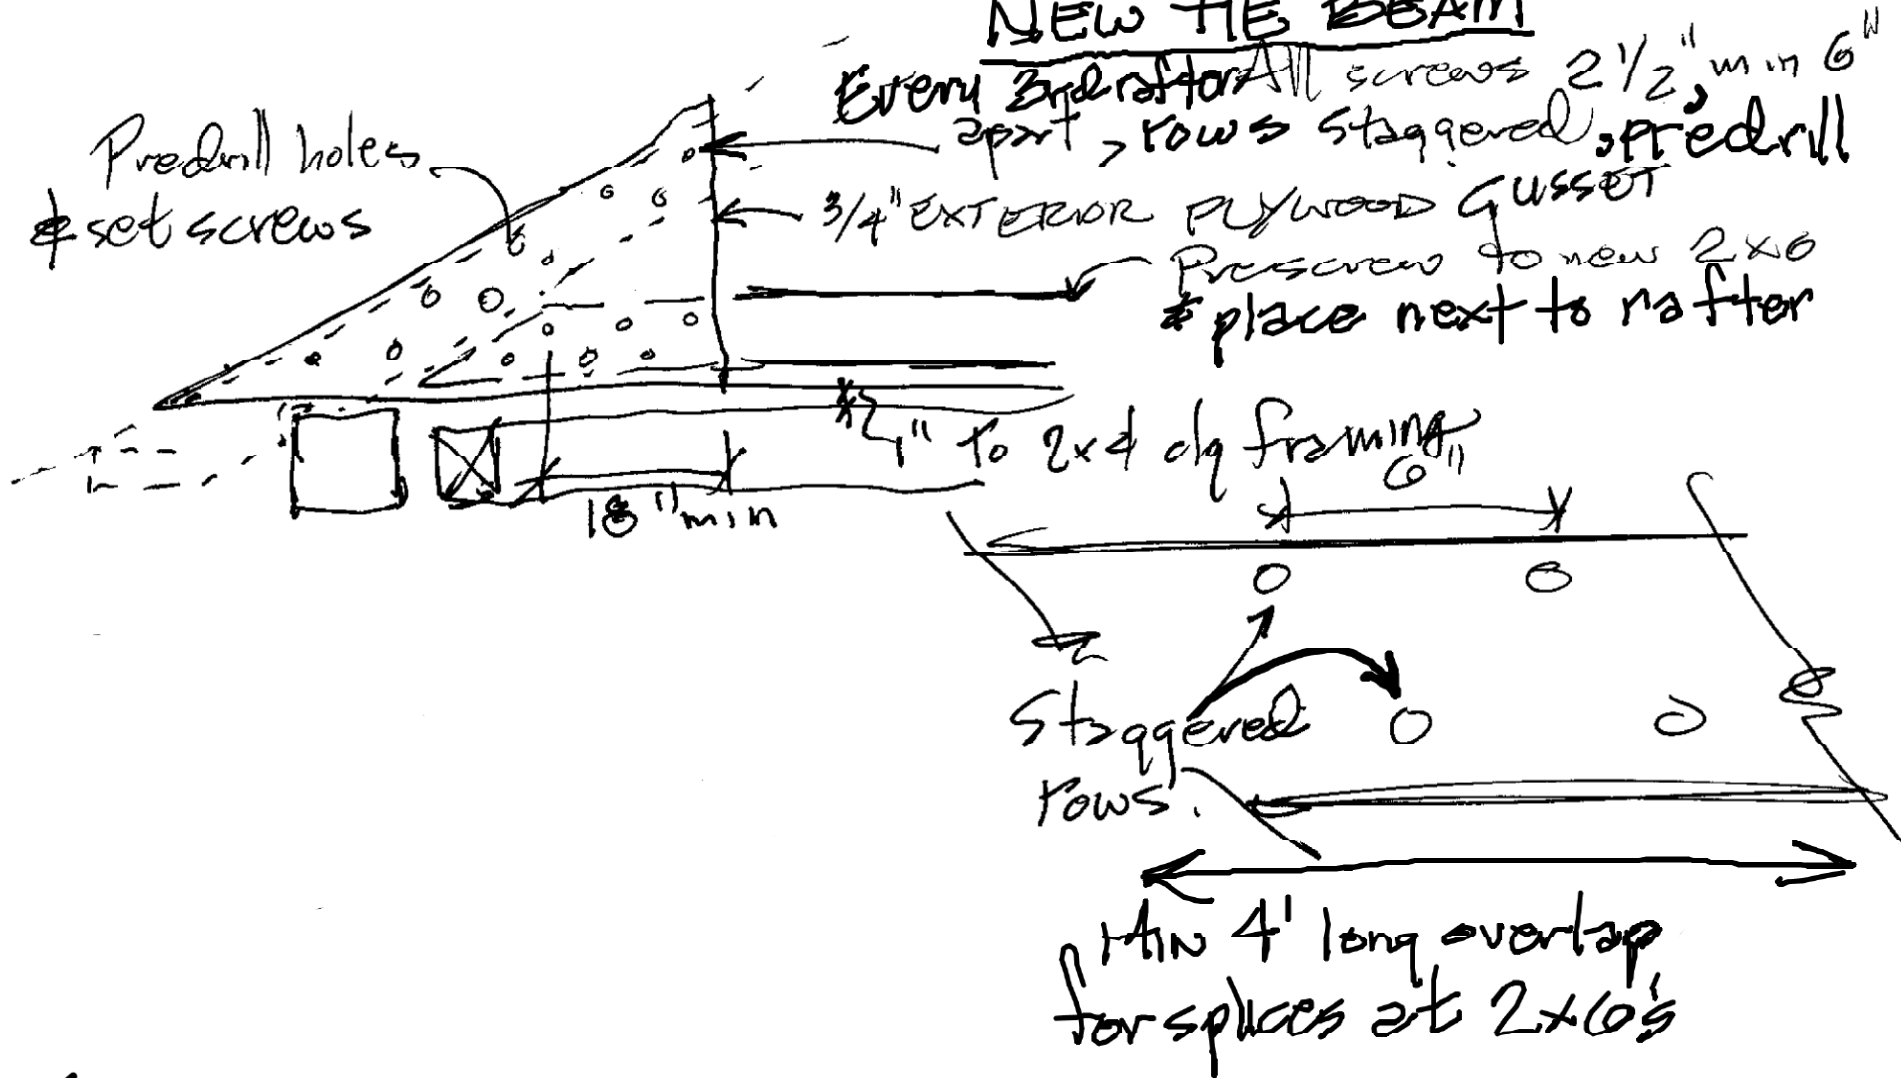 NEW TIE BEAM
Every 3rd rafter All screws 2 1/2", min 6"
apart, rows staggered, predrill
Predrill holes
& set screws
3/4" EXTERIOR PLYWOOD GUSSET
Prescrew to new 2x6
& place next to rafter
1" to 2x4 clg framing
18" min
6"
Staggered
rows.
MIN 4' long overlap
for splices at 2x6's